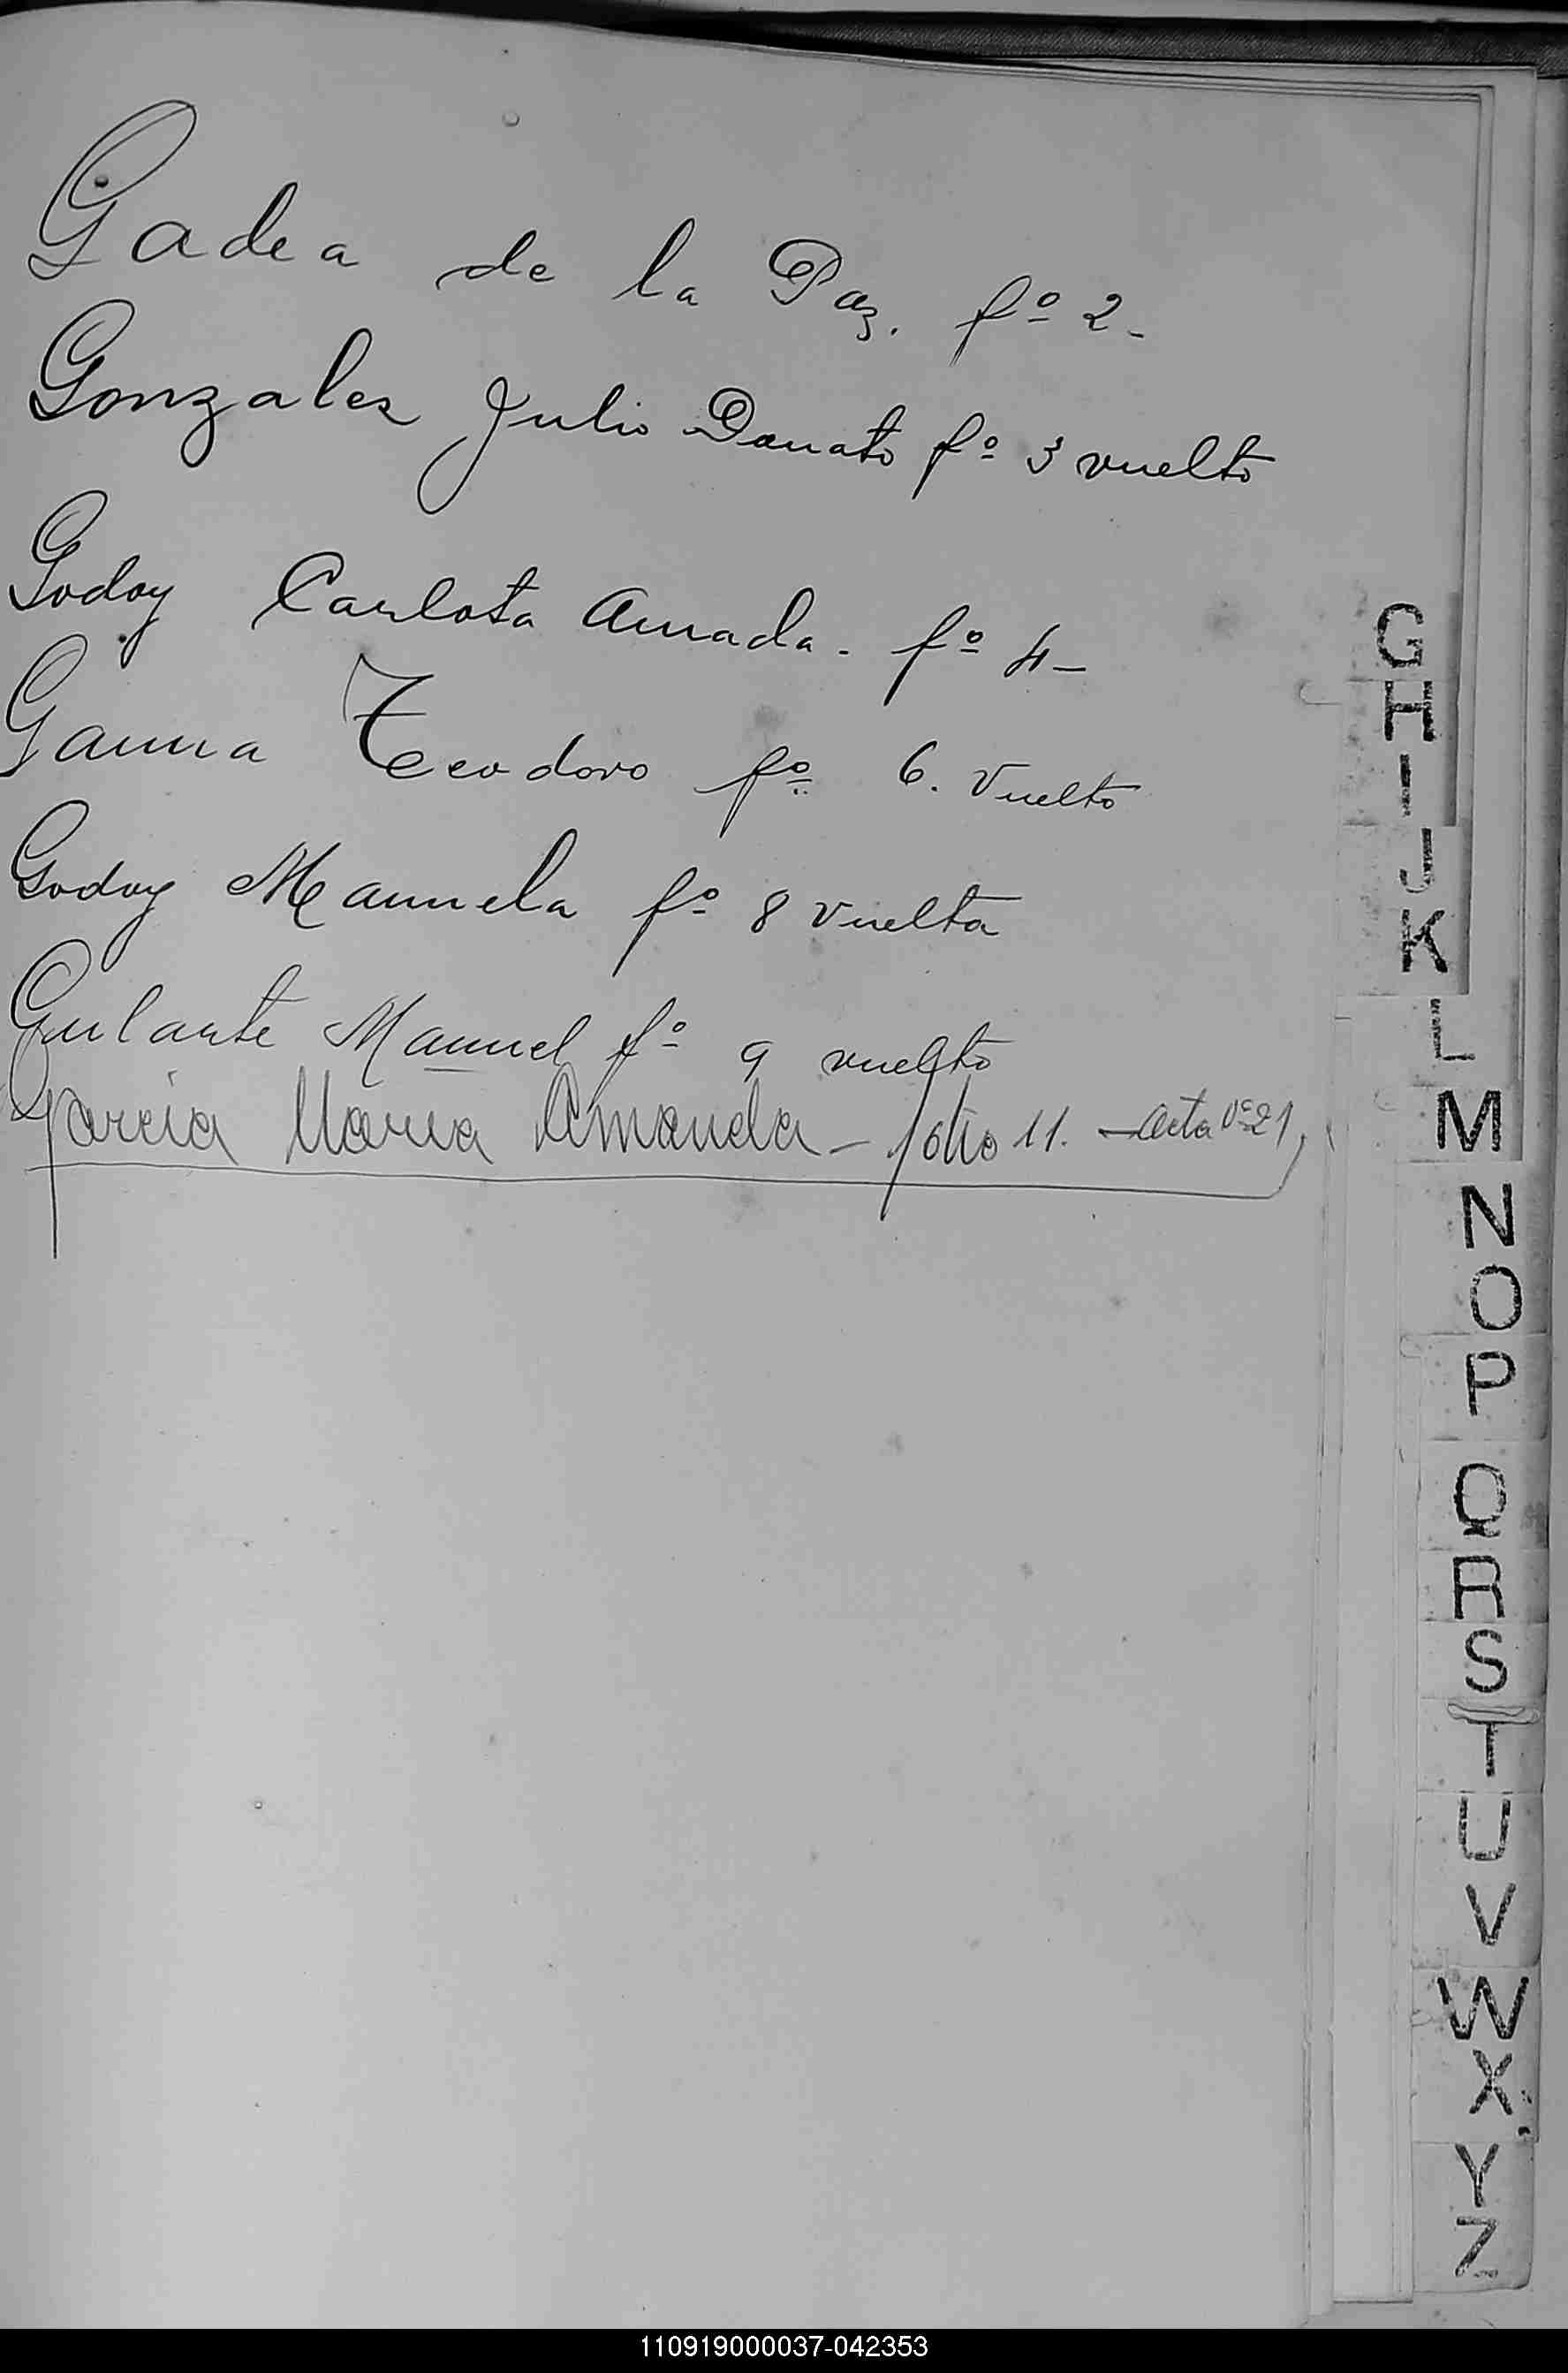 Gadea de la Paz. fº 2-
Gonzales Julio Donato fº 3 vuelto
Godoy Carlota Amada. fº 4-
Gauna Teodoro fº 6. Vuelto
Godoy Manuela fº 8 vuelta
Gularte Manuel fº 9 vuelto
Garcia Maria Amanda - folio 11. - Acta Nº 21
G
H
I
J
K
L
M
N
O
P
Q
R
S
T
U
V
W
X
Y
Z
110919000037-042353